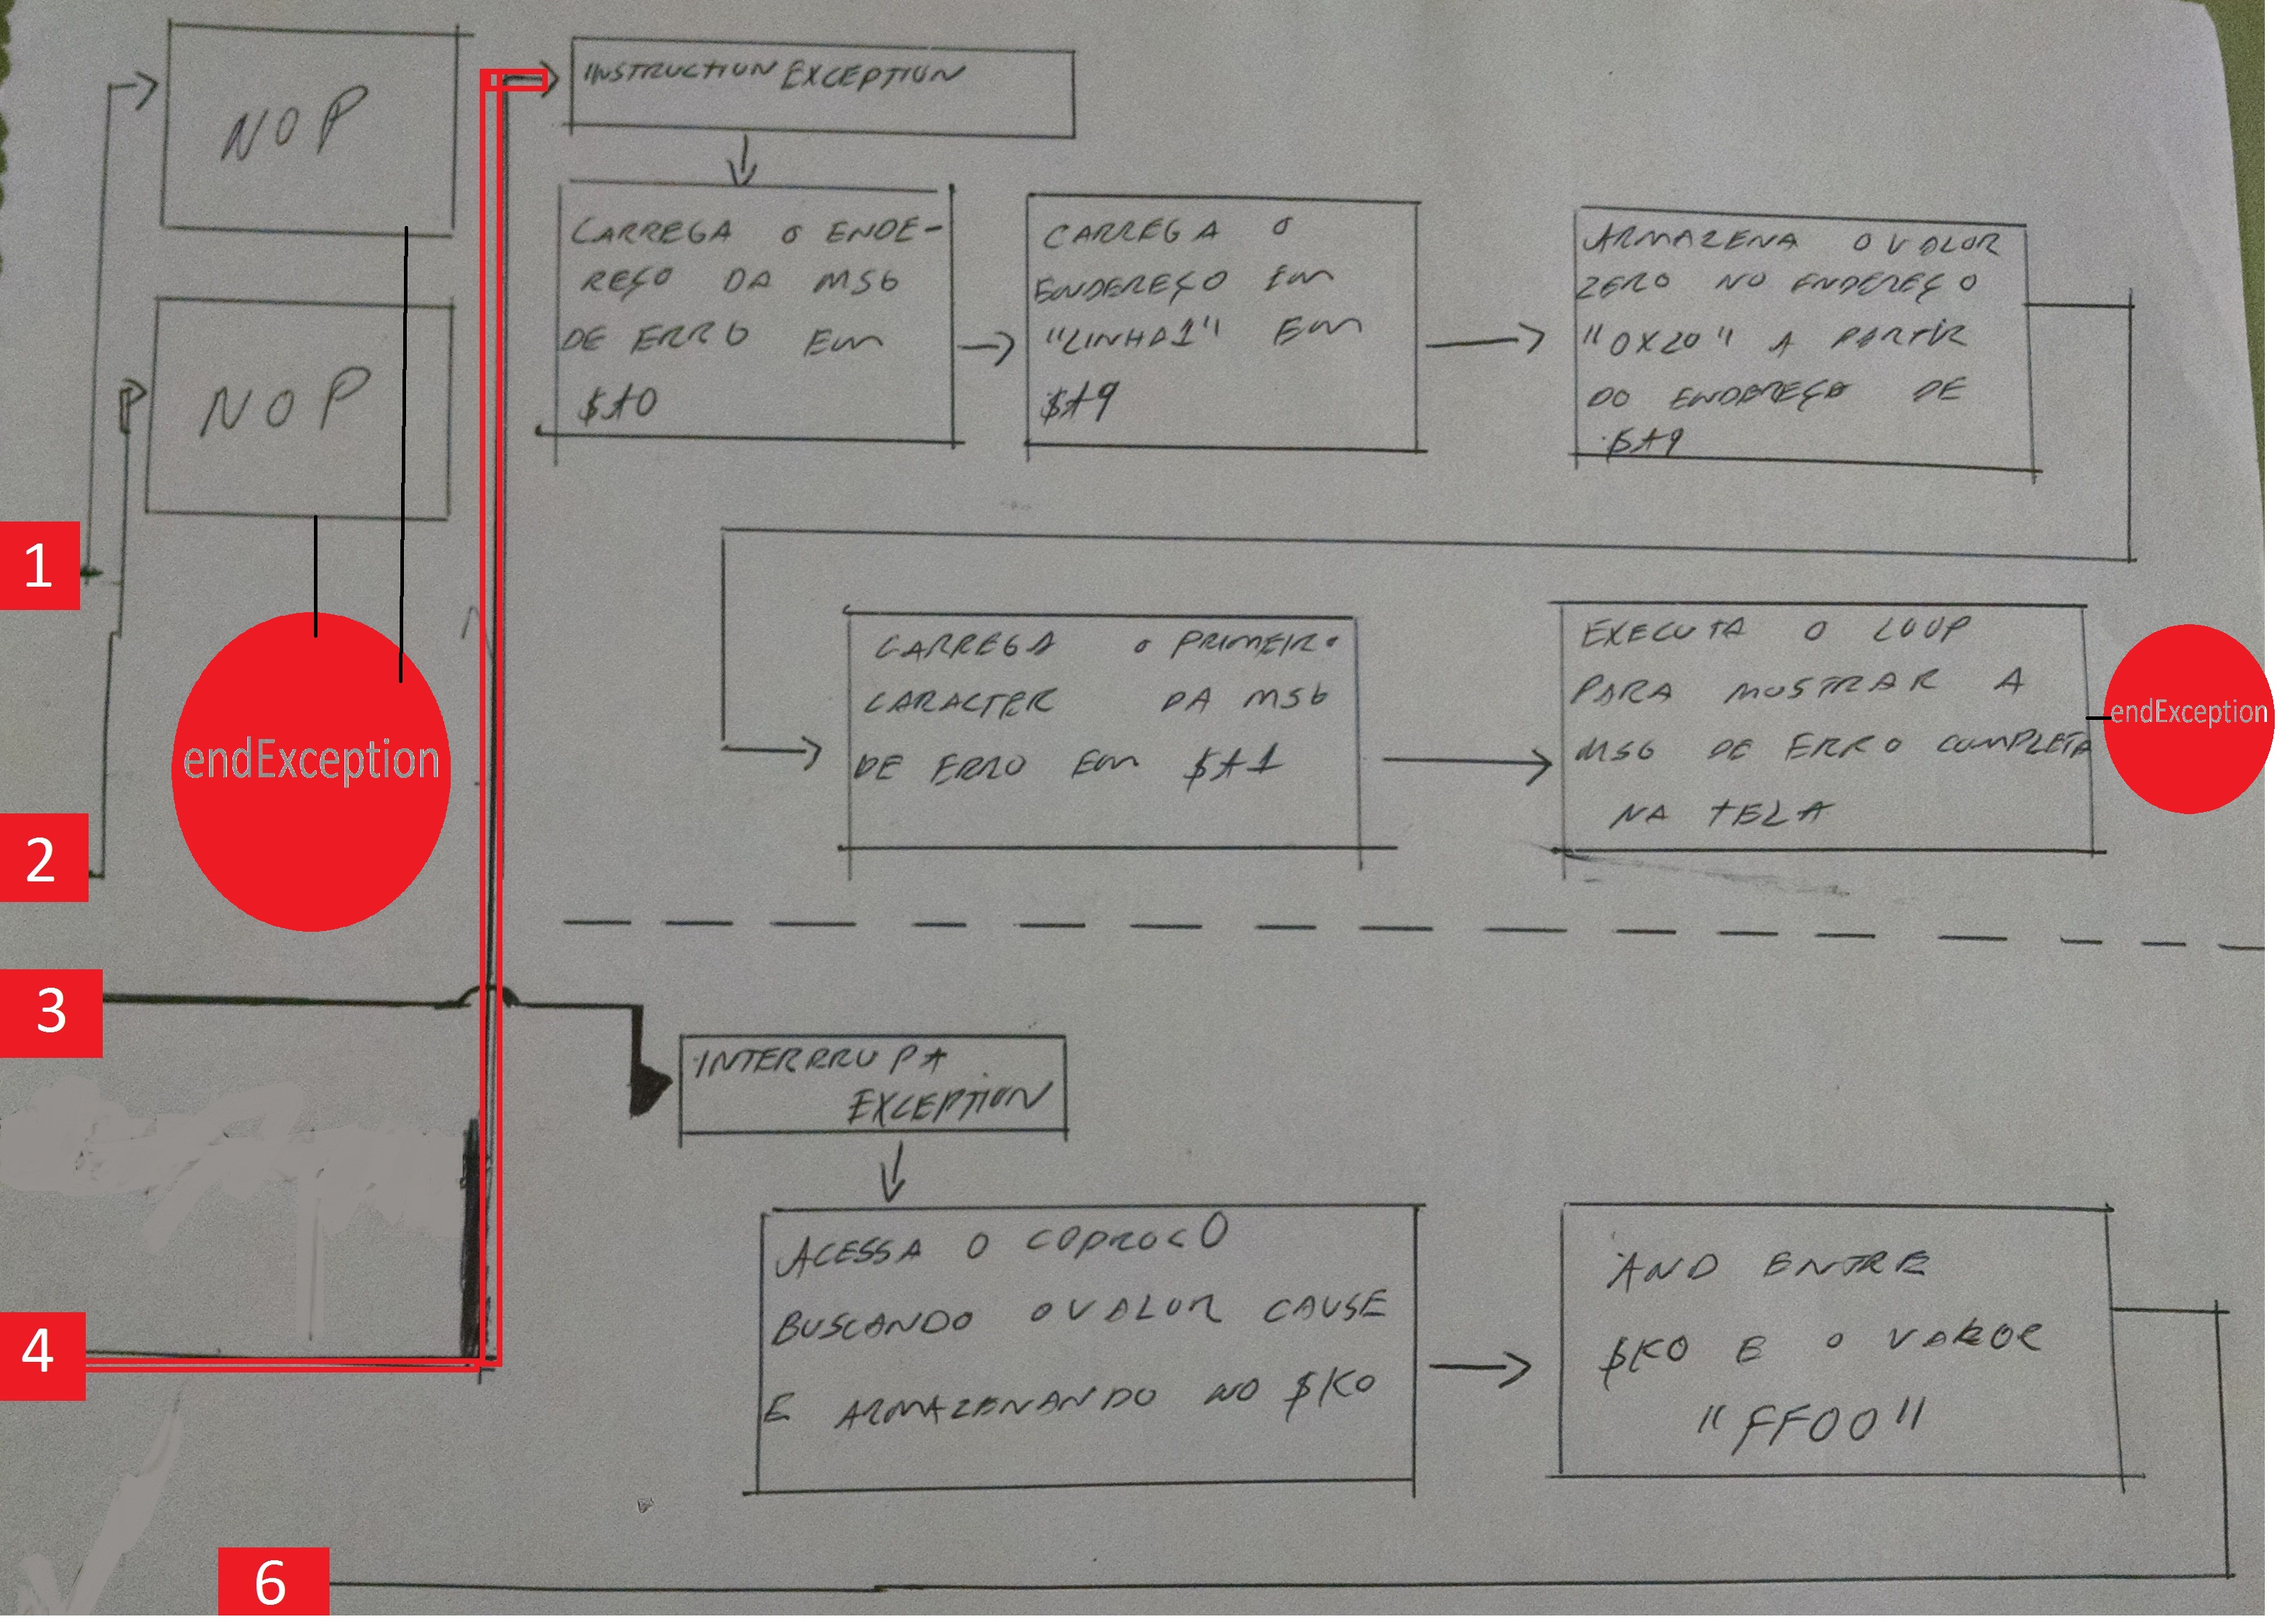 NOP
INSTRUCTION EXCEPTION
CARREGA O ENDE-
REÇO DA MSG
DE ERRO EM
$t0
CARREGA O
ENDEREÇO EM
"LINHA1" EM
$t9
ARMAZENA O VALOR
ZERO NO ENDEREÇO
"0X20" A PARTIR
DO ENDEREÇO DE
$t9
NOP
1
CARREGA O PRIMEIRO
CARACTER DA MSG
DE ERRO EM $t1
EXECUTA O LOOP
PARA MOSTRAR A
MSG DE ERRO COMPLETA
NA TELA
endException
endException
2
3
INTERRRUPT
EXCEPTION
ACESSA O COPROC0
BUSCANDO O VALOR CAUSE
E ARMAZENANDO NO $K0
AND ENTRE
$K0 E O VALOR
"FF00"
4
6